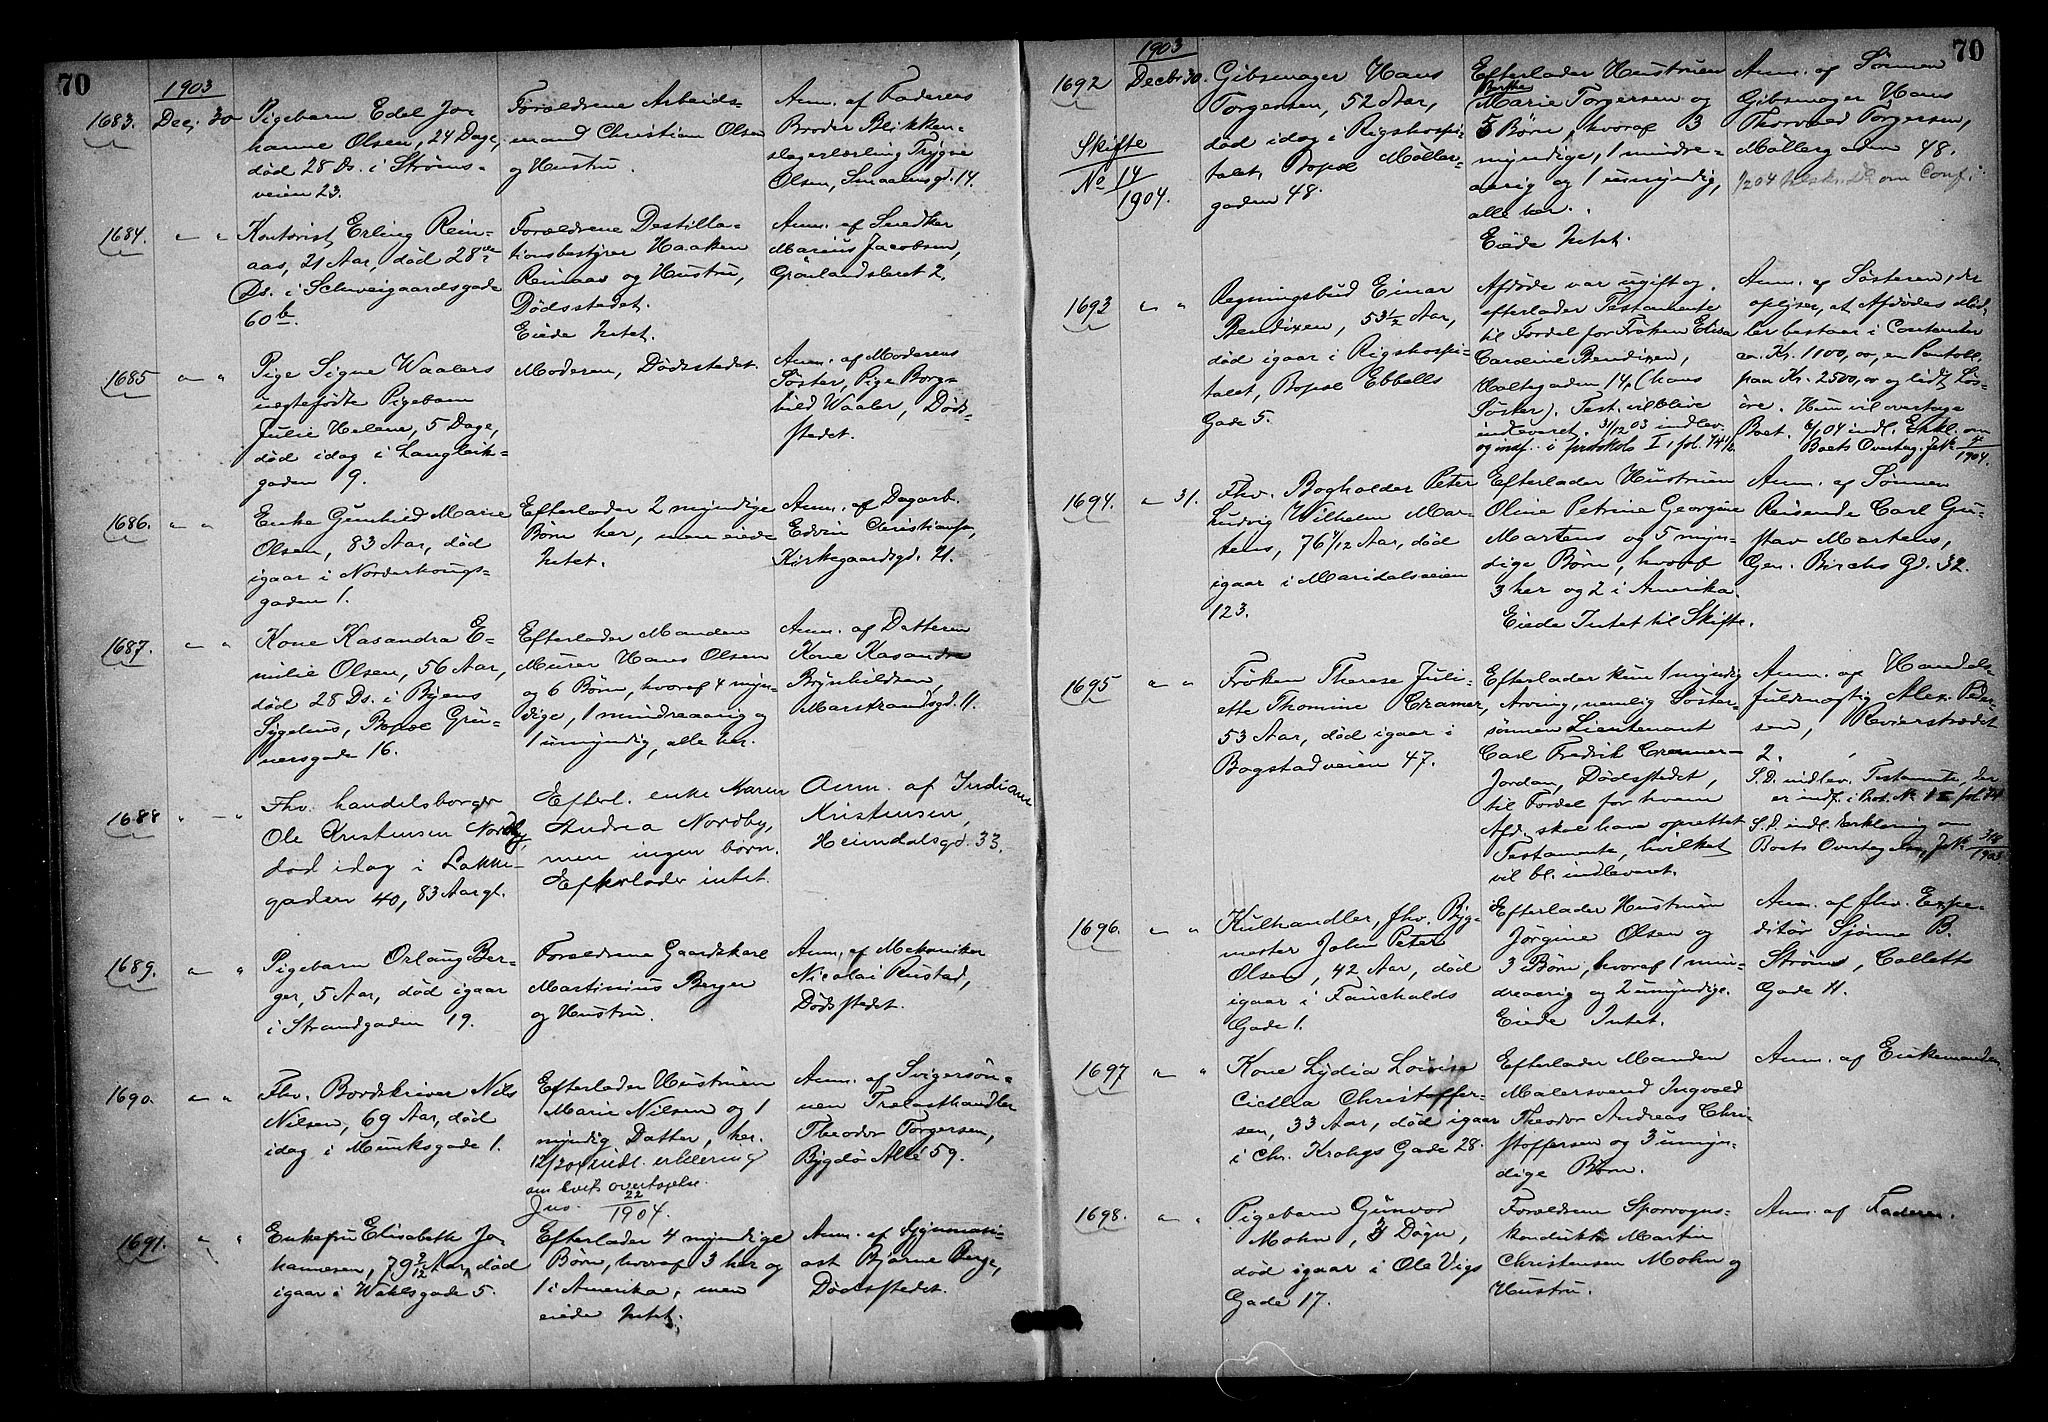 70
1903
1683.
Dec. 30
Pigebarn Edel Jo-
hanne Olsen, 24 Dage,
død 28 Ds. i Strøms-
veien 23.
Forældrene Arbeids-
mand Christian Olsen
og Hustru.
Anm. af Faderens
Broder Blikken-
slagerlærling Trygve
Olsen, Smaalensgd. 14.
1684.
" "
Kontorist Erling Rein-
aas, 21 Aar, død 28de
Ds. i Schweigaardsgade
60 b.
Forældrene Destilla-
tionsbestyrer Haaken
Reinaas og Hustru,
Dødsstedet.
Eiede Intet.
Anm. af Snedker
Marius Jacobsen,
Grønlandsleret 2.
1685
" "
Pige Signe Waalers
uægtefødte Pigebarn
Julie Helene, 5 Dage,
død idag i Langleik-
gaden 9.
Moderen, Dødsstedet.
Anm. af Moderens
Søster, Pige Borg-
hild Waaler, Døds-
stedet.
1686.
" "
Enke Gunhild Marie
Olsen, 83 Aar, død
igaar i Norderhougs-
gaden 1.
Efterlader 2 myndige
Børn her, men eiede
Intet.
Anm. af Dagarb.
Edvin Christiansen,
Kirkegaardsgd. 21.
1687.
" "
Kone Kasandra E-
milie Olsen, 56 Aar,
død 28 Ds. i Byens
Sygehus, Bopæl Grü-
nersgade 16.
Efterlader Manden
Murer Hans Olsen
og 6 Børn, hvoraf 4 myn-
dige, 1 mindreaarig og
1 umyndig, alle her.
Anm. af Datteren
Kone Kasandra
Brynhildsen,
Marstrandsgd. 11.
1688
" "
Fhv. handelsborger
Ole Kristensen Nordby,
død idag i Lakke-
gaden 40, 83 Aar gl.
Efterl. enke Maren
Andrea Nordby,
men ingen børn.
Efterlader intet.
Anm. af
Kristensen,
Heimdalsgd. 33.
1689.
" "
Pigebarn Orlaug Ber-
ger, 5 Aar, død igaar
i Strandgaden 19.
Forældrene Gaardskarl
Martinius Berger
og Hustru.
Anm. af Mekaniker
Nicolai Rustad,
Dødsstedet.
1690.
" "
Fhv. Bordskriver Nils
Nilsen, 69 Aar, død
idag i Munksgade 1.
Efterlader Hustruen
Marie Nilsen og 1
myndig Datter, her.
12/2 04 indl. erklæring
om boets overtagelse.
Jno. 22/1904.
Anm. af Svigersøn-
nen Trelasthandler
Theodor Torgersen,
Bygdø Allé 59.
1691.
" "
Enkefru Elisabeth Jo-
hannesen, 79 2/12 Aar, død
igaar i Wahlsgade 5.
Efterlader 4 myndige
Børn, hvoraf 3 her og
1 i Amerika, men
eiede Intet.
Anm. af Gymnasi-
ast Bjarne Berge,
Dødsstedet.
70
1903
1692
Decbr 30.
Skifte
No 14/1904.
Gibsmager Hans
Torgersen, 52 Aar,
død idag i Rigshospi-
talet, Bopæl Møller-
gaden 48.
Efterlader Hustruen
Marie Torgersen og
5 Børn, hvoraf 3
myndige, 1 mindre-
aarig og 1 umyndig,
alle her.
Eiede Intet.
Anm. af Sønnen
Gibsmager Hans
Thorvald Torgersen,
Møllergaden 48.
1/2 04 om Conf.
1693
" "
Regningsbud Einar
Bendixen, 53 1/2 Aar,
død igaar i Rigshospi-
talet, Bopæl Ebbells
Gade 5.
Afdøde var ugift og
efterlader Testamente
til Fordel for Frøken Elisa
Caroline Bendixen,
Holtegaden 14, (hans
Søster). Test. vil blive
indleveret. 31/12 03 indlev.
og indf. i protokol I fol. 74 1/2.
Anm. af Søsteren, der
oplyser, at Afdødes Mid-
ler bestaar i Contanter
ca. Kr. 1100,00, en Pantobl.
paa Kr. 2500,00 og lidt Løs-
øre. Hun vil overtage
Boet. 6/1 04 indl. Erkl. om
Boets Overtag. JNo 4/1904.
1694.
" 31.
Fhv. Bogholder Peter
Ludvig Wilhelm Mar-
tens, 76 4/12 Aar, død
igaar i Maridalsveien
123.
Efterlader Hustruen
Oline Petrine Georgine
Martens og 5 myn-
dige Børn, hvoraf
3 her og 2 i Amerika.
Eiede Intet til Skifte.
Anm. af Sønnen
Reisende Carl Gu-
stav Martens,
Gen. Birchs Gd. 32.
1695
" "
Frøken Therese Juli-
ette Thomine Cramer,
53 Aar, død igaar i
Bogstadveien 47.
Efterlader kun 1 myndig
Arving, nemlig Søster-
sønnen Lieutenant
Carl Fredrik Cramer-
Jordan, Dødsstedet,
til Fordel for hvem
Afd. skal have oprettet
Testamente, hvilket
vil bl. indleveret.
Anm. af Handels-
fuldmægtig Alex. Peder-
sen, Revierstrædet
2.
S.D. indlev. Testamente, der
er indf. i Prot. No I fol. 74
S.D. indl. Erklæring om
Boets Overtagelse, JNo 318/1903
1696.
" "
Kulhandler, fhv. Byg-
mester John Peter
Olsen, 42 Aar, død
igaar i Fauchalds
Gade 1.
Efterlader Hustruen
Jørgine Olsen og
3 Børn, hvoraf 1 min-
dreaarig og 2 umyndige.
Eiede Intet.
Anm. af fhv. Expe-
ditør Sjønne B.
Strøms, Colletts
Gade 11.
1697
" "
Kone Lydia Lovise
Cicilia Christoffer-
sen, 33 Aar, død igaar
i Chr. Krohgs Gade 28.
Efterlader Manden
Malersvend Ingvald
Theodor Andreas Chri-
stoffersen og 3 umyn-
dige Børn.
Anm. af Enkemanden.
1698.
" "
Pigebarn Gunvor
Mohn, 3 Døgn,
død igaar i Ole Vigs
Gade 17.
Forældrene Sporvogns-
konduktør Martin
Christensen Mohn og
Hustru.
Anm. af Faderen.